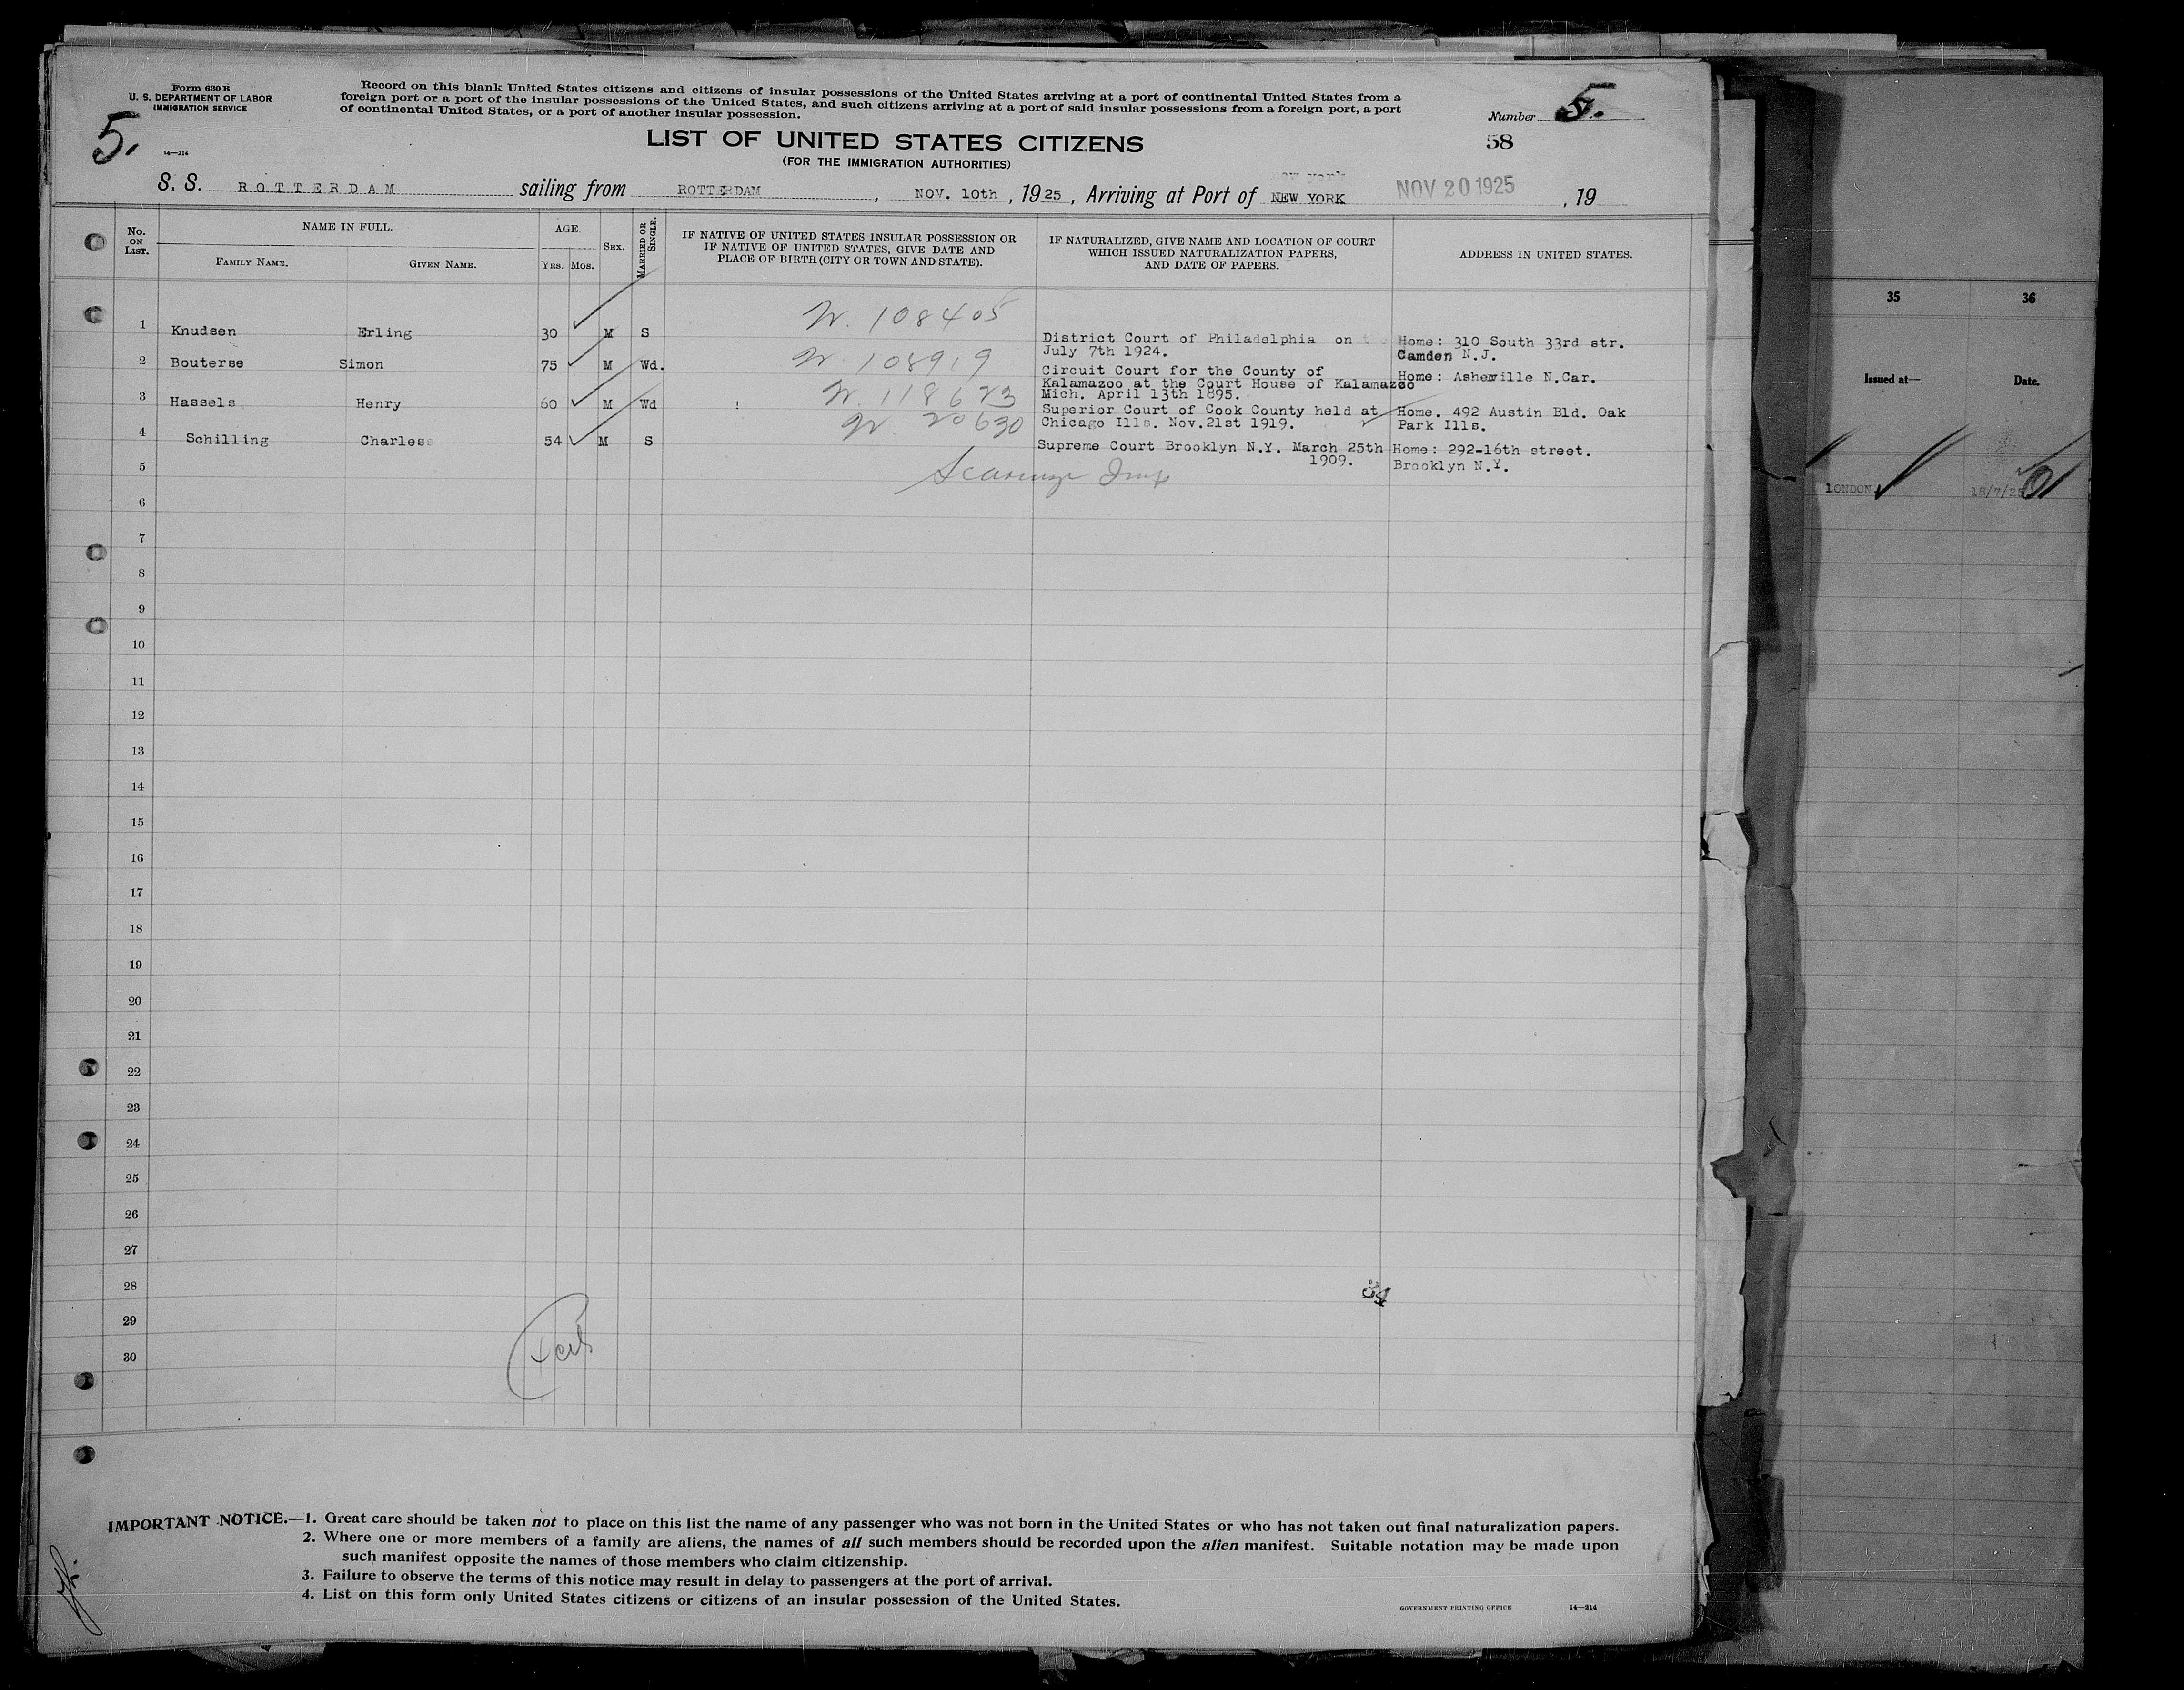 Form 630 B
U. S. DEPARTMENT OF LABOR
IMMIGRATION SERVICE
5.
14—214
Record on this blank United States citizens and citizens of insular possessions of the United States arriving at a port of continental United States from a
foreign port or a port of the insular possessions of the United States, and such citizens arriving at a port of said insular possessions from a foreign port, a port
of continental United States, or a port of another insular possession.
Number 5.
58
LIST OF UNITED STATES CITIZENS
(FOR THE IMMIGRATION AUTHORITIES)
S. S. ROTTERDAM sailing from ROTTERDAM, NOV. 10th, 1925, Arriving at Port of NEW YORK NOV 20 1925, 19
No. ON LIST. NAME IN FULL. FAMILY NAME. GIVEN NAME. AGE. YRS. MOS. SEX. MARRIED OR SINGLE. IF NATIVE OF UNITED STATES INSULAR POSSESSION OR IF NATIVE OF UNITED STATES, GIVE DATE AND PLACE OF BIRTH (CITY OR TOWN AND STATE). IF NATURALIZED, GIVE NAME AND LOCATION OF COURT WHICH ISSUED NATURALIZATION PAPERS, AND DATE OF PAPERS. ADDRESS IN UNITED STATES.
1 Knudsen Erling 30 M S 108405 District Court of Philadelphia on Home: 310 South 33rd str.
July 7th 1924. Camden N.J.
2 Bouterse Simon 75 M Wd. 108919 Circuit Court for the County of Home: Asheville N.Car.
Kalamazoo at the Court House of Kalamazoo
Mich. April 13th 1895.
3 Hassels Henry 60 M Wd 118623 Superior Court of Cook County held at Home. 492 Austin Bld. Oak
Chicago Ills. Nov.21st 1919. Park Ills.
4 Schilling Charles 54 M S 20630 Supreme Court Brooklyn N.Y. March 25th Home: 292-16th street.
1909. Brooklyn N.Y.
5
6
7
8
9
10
11
12
13
14
15
16
17
18
19
20
21
22
23
24
25
26
27
28
29
30
34
IMPORTANT NOTICE.—1. Great care should be taken not to place on this list the name of any passenger who was not born in the United States or who has not taken out final naturalization papers.
2. Where one or more members of a family are aliens, the names of all such members should be recorded upon the alien manifest. Suitable notation may be made upon
such manifest opposite the names of those members who claim citizenship.
3. Failure to observe the terms of this notice may result in delay to passengers at the port of arrival.
4. List on this form only United States citizens or citizens of an insular possession of the United States.
GOVERNMENT PRINTING OFFICE 14—214
35 36
Issued at— Date.
LONDON